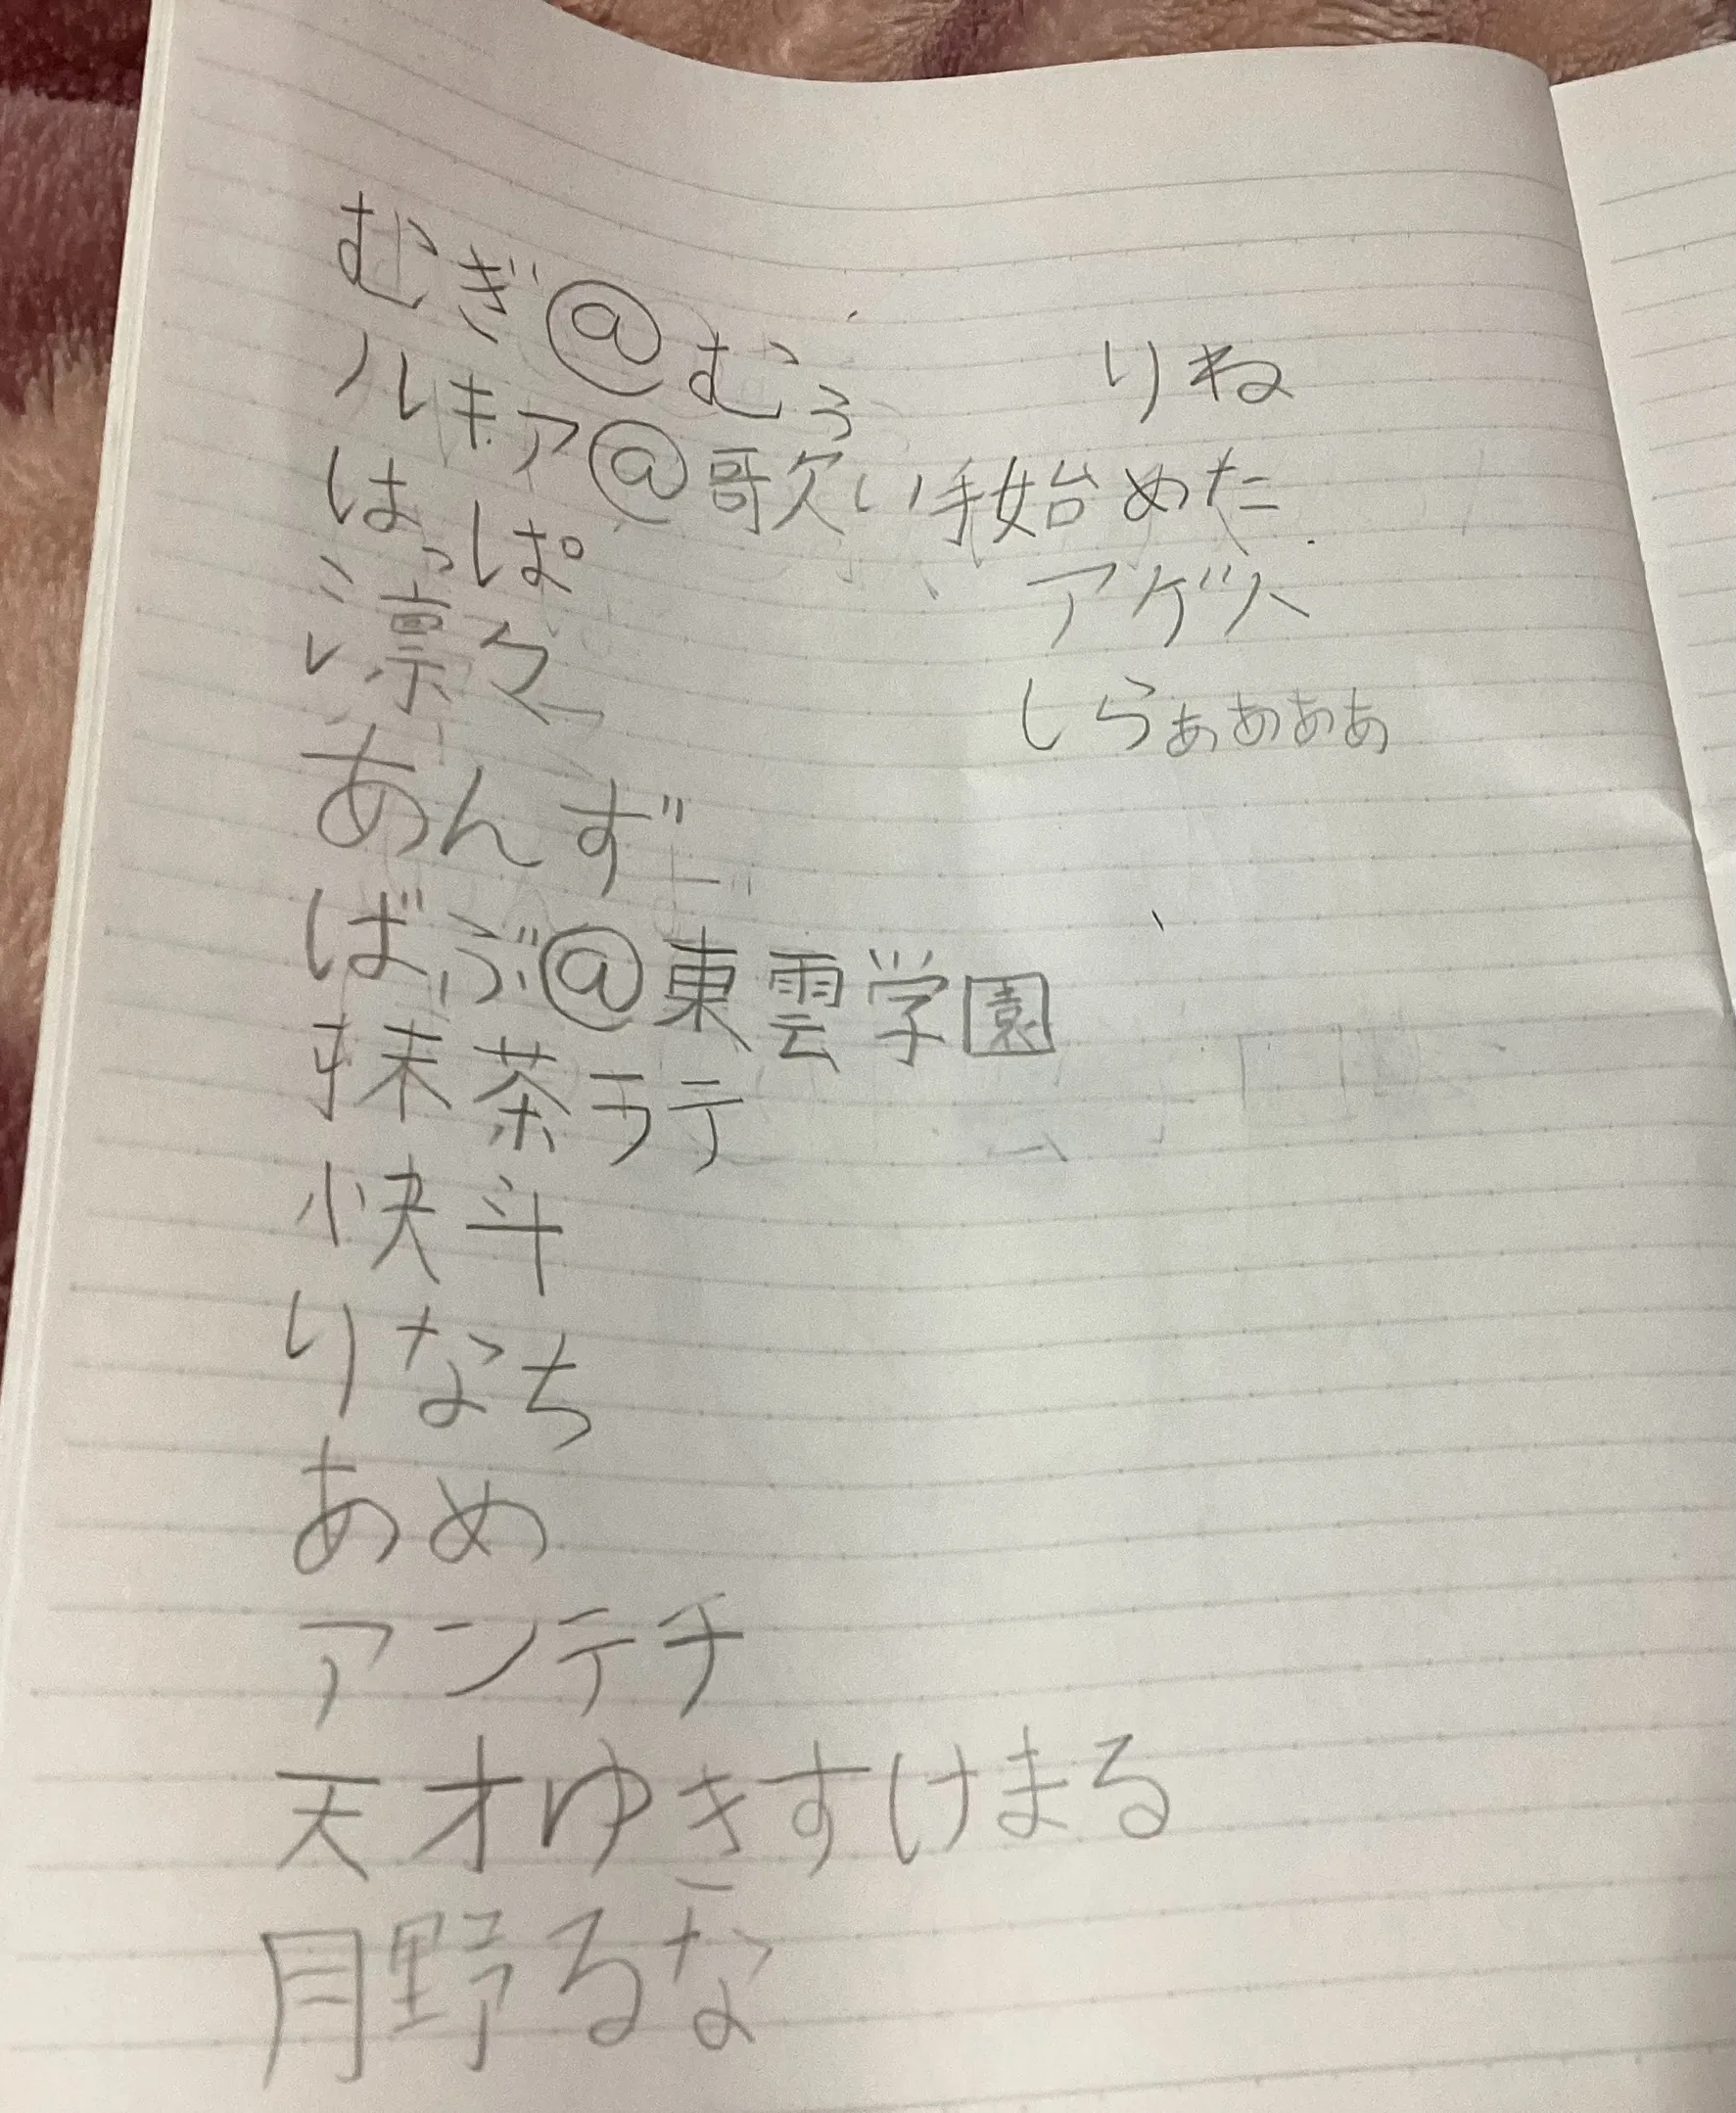 むぎ@むぅ
ルキア@歌い手始めた
はっぱ
凛々
あんず
ばぶ@東雲学園
抹茶ラテ
快斗
りなち
あめ
アンテチ
天才ゆきすけまる
月野るな
りね
アゲハ
しらぁぁぁぁ